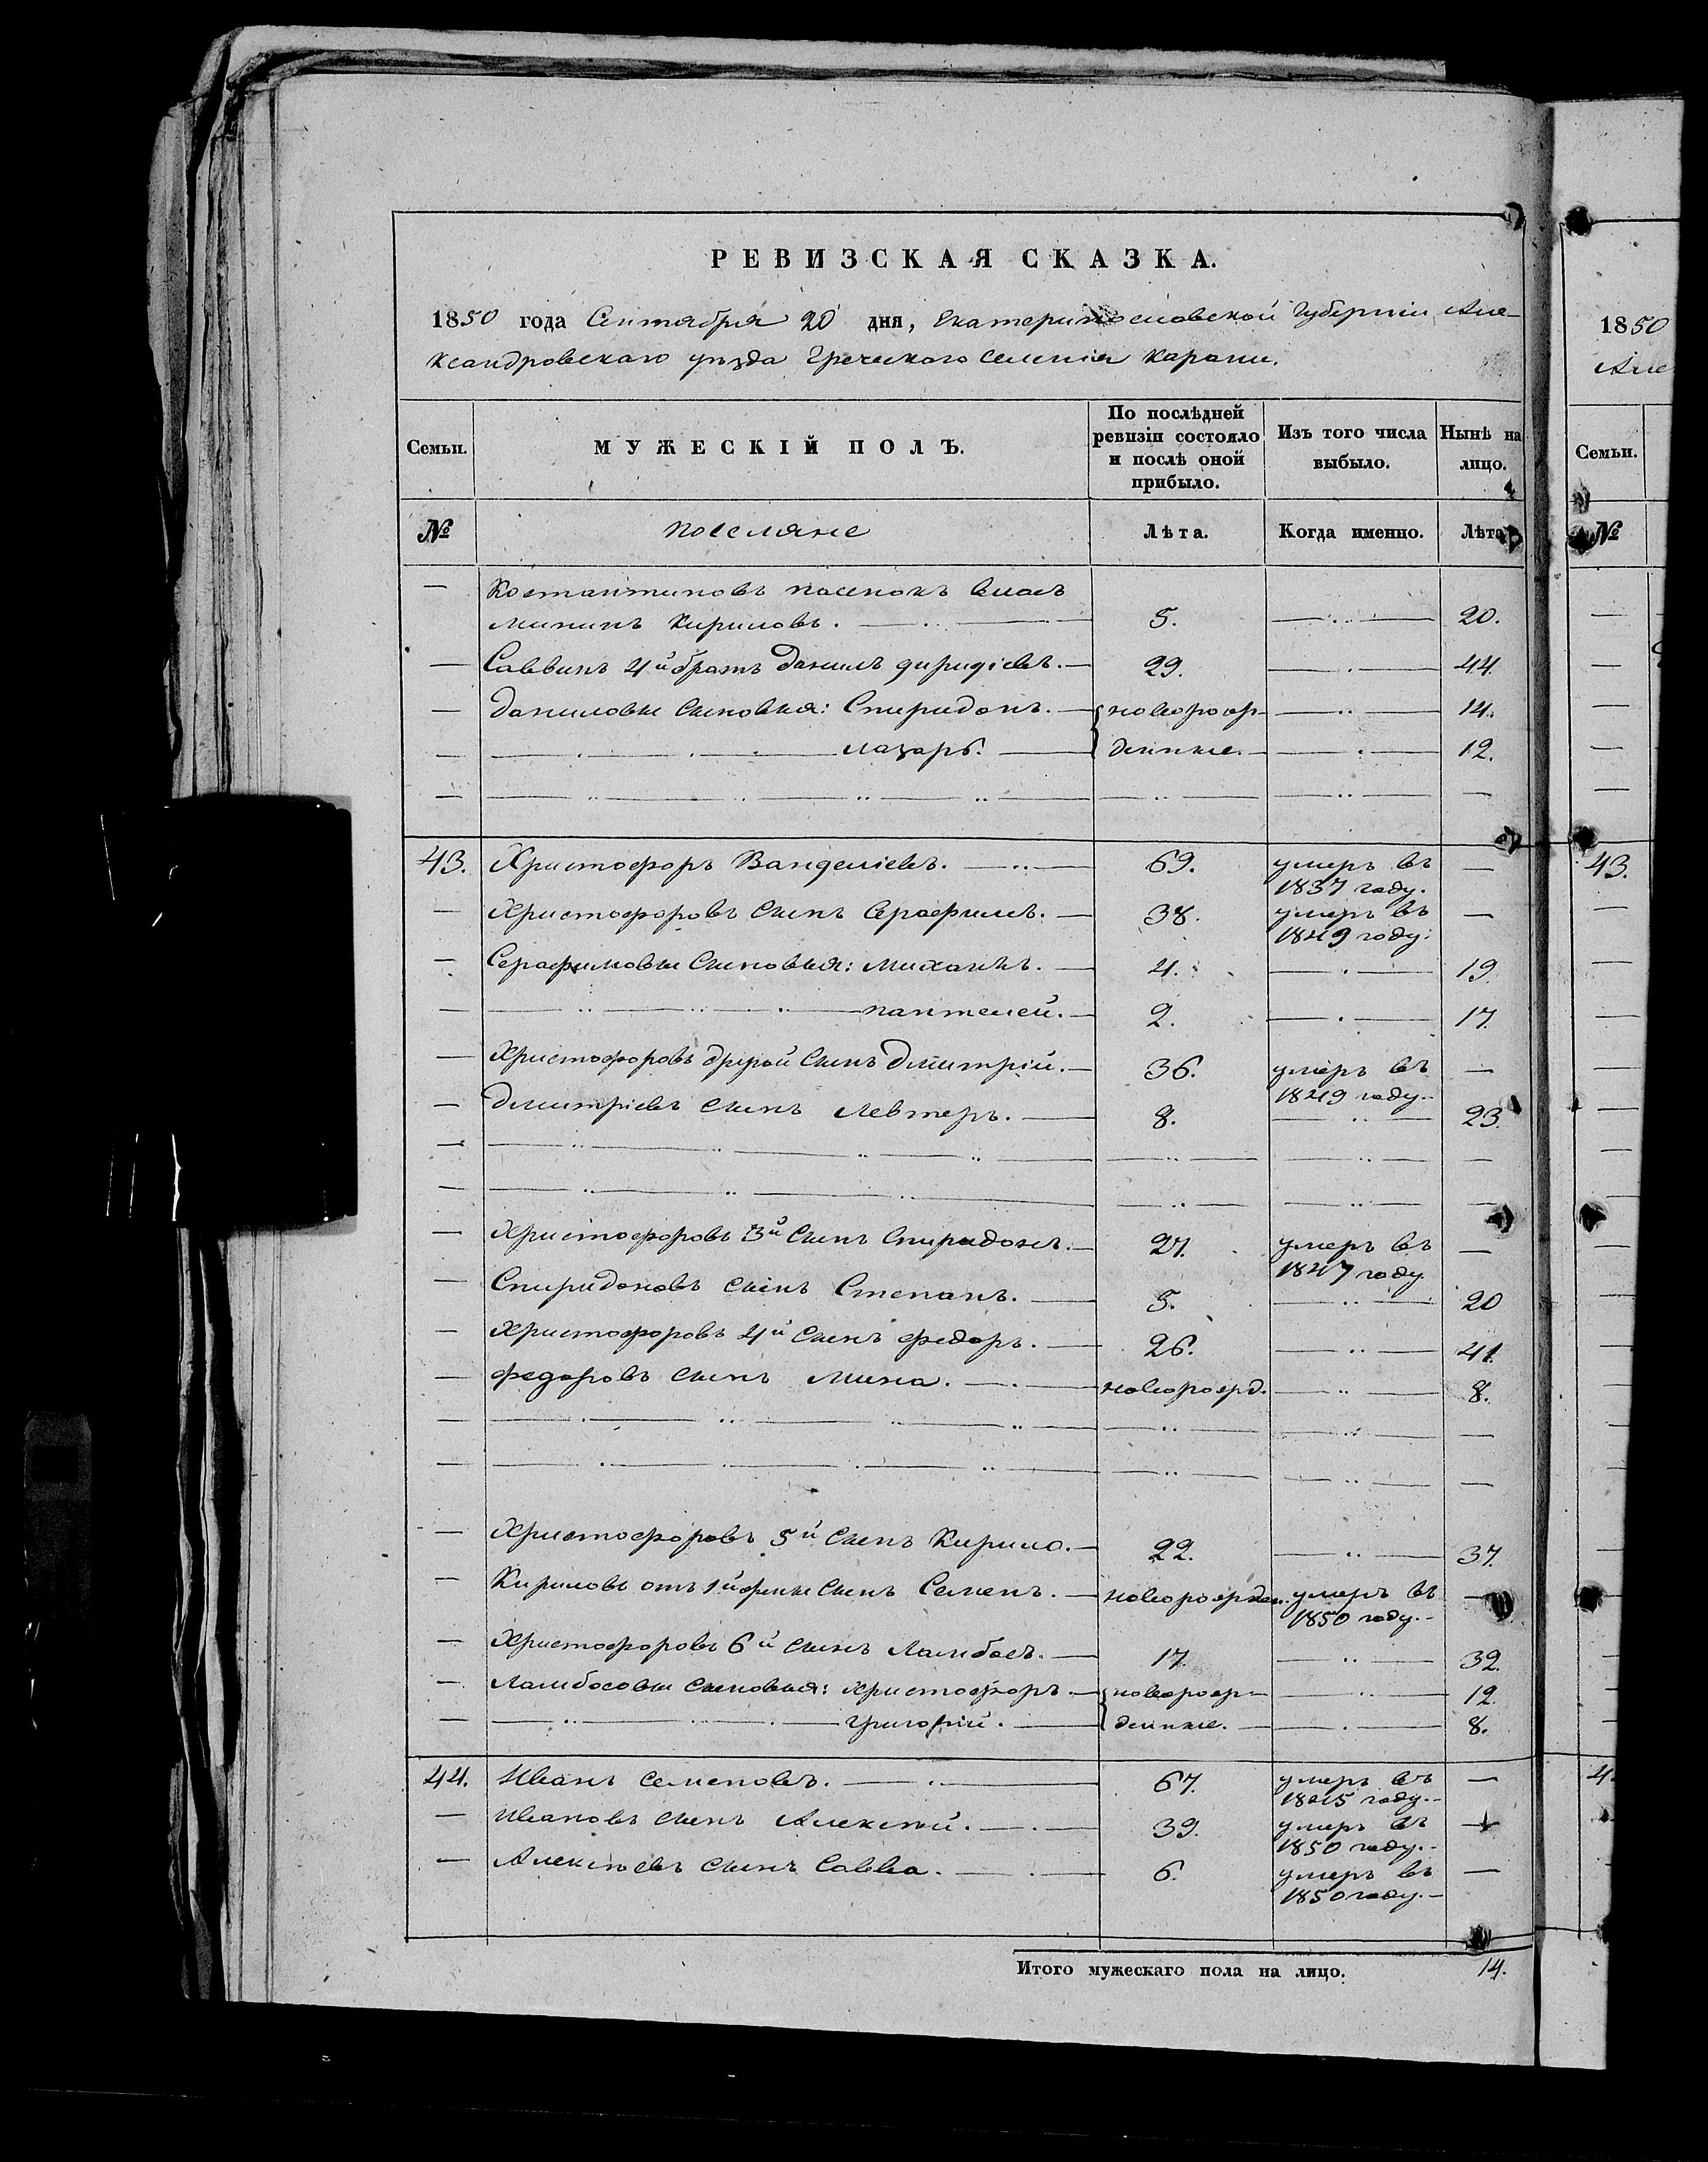 РЕВИЗСКАЯ СКАЗКА.
1850 года Сентября 20 дня, Екатеринославской Губерніи Але-
ксандровскаго уѣзда Греческого селенія Карани.
Семьи. МУЖЕСКІЙ ПОЛЪ. По послѣдней ревизіи состояло и послѣ оной прибыло. Изъ того числа выбыло. Нынѣ на лицо.
№ поселяне Лѣта. Когда именно. Лѣта
Костантиновъ пасенокъ власъ
Мининъ Кириловъ. 5. 20.
Саввинъ 4й братъ Данилъ 29. 44.
Даниловы сыновья: Спиридонъ. новорож- 14.
Лазарь. денные. 12.
43. Христофоръ Вангеліевъ. 69. умеръ въ
1837 году.
Христофоровъ сынъ Серафимъ. 38. умеръ въ
1849 году.
Серафимовы сыновья: Михаилъ. 4. 19.
пантелей. 2. 17.
Христофоровъ другой сынъ Дмитрій. 36. умеръ въ
1849 году.
Дмитріевъ сынъ Левтеръ. 8. 23.
Христофоровъ 3й сынъ Спиридонъ. 27. умеръ въ
1847 году.
Спиридоновъ сынъ Степанъ. 5. 20
Христофоровъ 4й сынъ федоръ. 26. 41.
федоровъ сынъ Мина. новорожд. 8.
Христофоровъ 5й сынъ Кирило. 22. 37.
Кириловъ отъ 1й жены сынъ Семенъ. новорожден. умеръ въ
1850 году.
Христофоровъ 6й сынъ Ламбосъ. 17. 32.
Ламбосовы сыновья: Христофоръ. новорож- 12.
Григорій. денные. 8.
44. Иванъ Семеновъ. 67. умеръ въ
1845 году.
Ивановъ сынъ Алексѣй. 39. умеръ въ
1850 году.
Алексѣевъ сынъ Савва. 6. умеръ въ
1850 году.
Итого мужескаго пола на лицо. 14.
1850
Але
Семьи.
№
43.
4